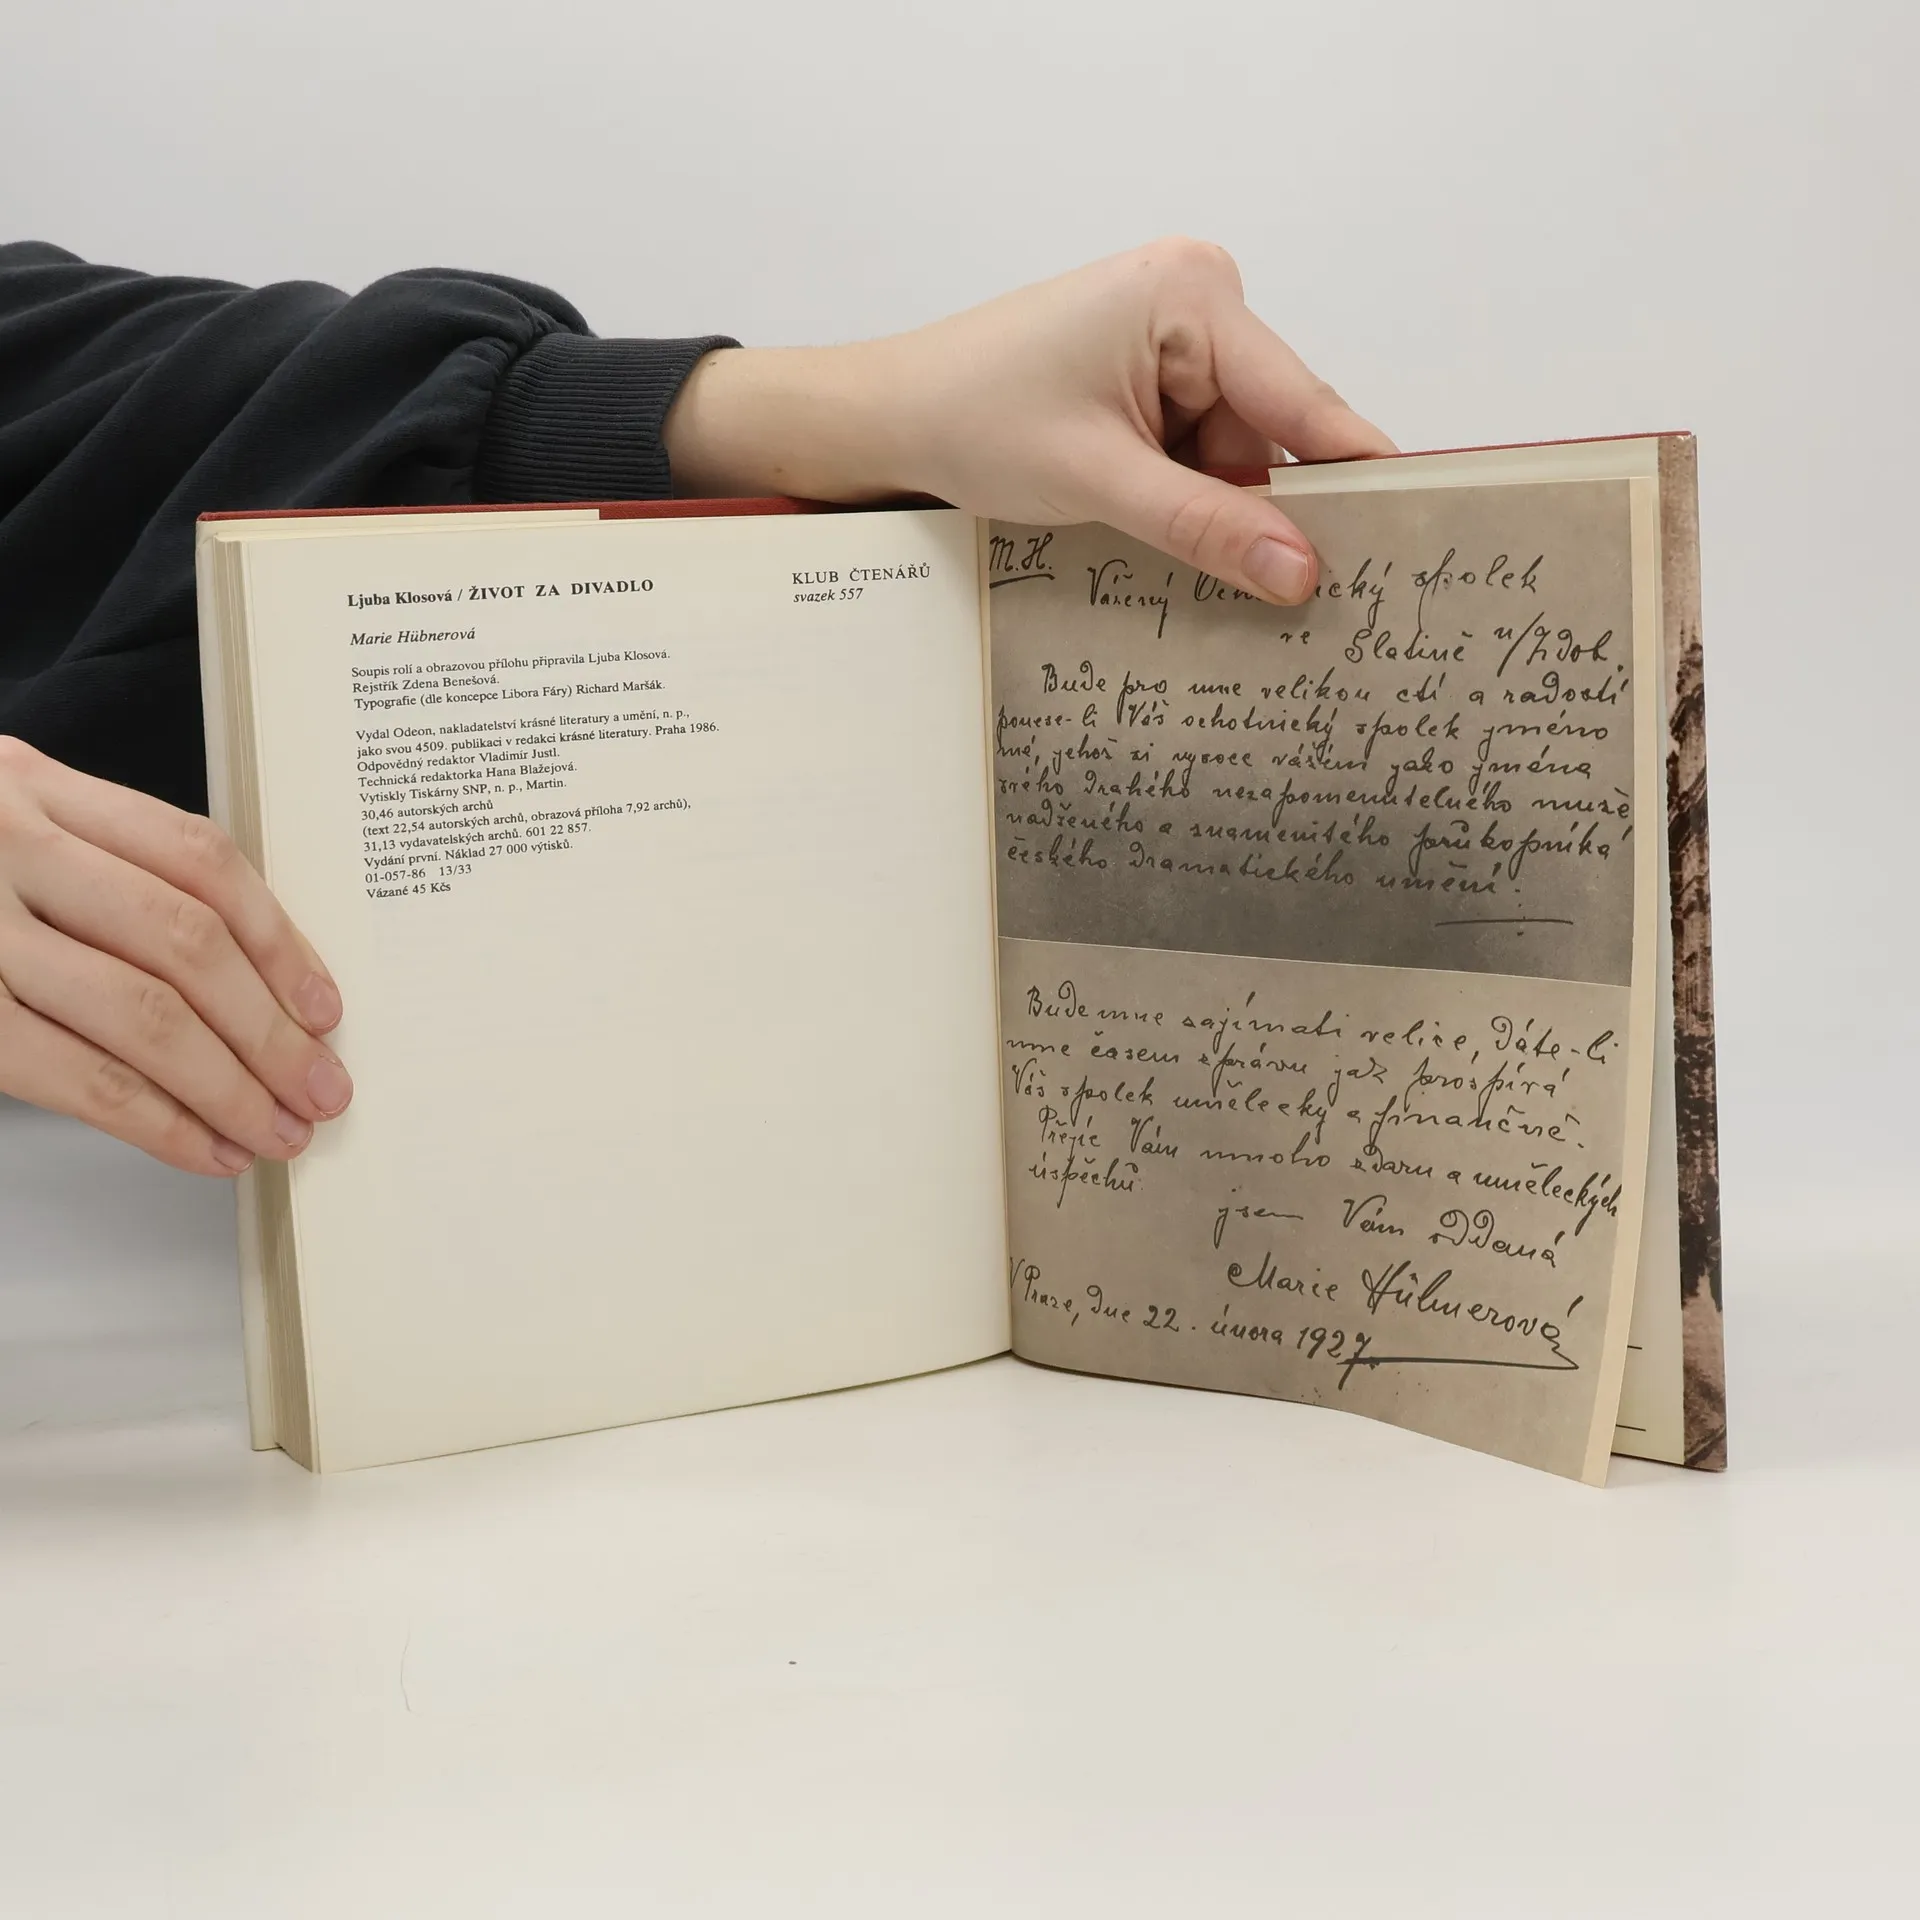 Ljuba Klosová / ŽIVOT ZA DIVADLO
KLUB ČTENÁŘŮ
svazek 557
Marie Hübnerová
Soupis rolí a obrazovou přílohu připravila Ljuba Klosová.
Rejstřík Zdena Benešová.
Typografie (dle koncepce Libora Fáry) Richard Maršák.
Vydal Odeon, nakladatelství krásné literatury a umění, n. p.,
jako svou 4509. publikaci v redakci krásné literatury. Praha 1986.
Odpovědný redaktor Vladimír Justl.
Technická redaktorka Hana Blažejová.
Vytiskly Tiskárny SNP, n. p., Martin.
30,46 autorských archů
(text 22,54 autorských archů, obrazová příloha 7,92 archů),
31,13 vydavatelských archů. 601 22 857.
Vydání první. Náklad 27 000 výtisků.
01-057-86 13/33
Vázané 45 Kčs
M.H.
Vážený spolek
ve Slatině n/Zdob.
Bude pro mne velikou ctí a radostí
ponese-li Váš ochotnický spolek jméno
mé, jehož si vysoce vážím jako jména
svého drahého nezapomenutelného muže
nadšeného a znamenitého průkopníka
českého dramatického umění.
Bude mne zajímati velice, dáte-li
mne časem zprávu jak prospívá
Váš spolek umělecky a finančně.
Přejíc Vám mnoho zdaru a uměleckých
úspěchů
jsem Vám oddaná
Marie Hübnerová
V Praze, dne 22. února 1927.